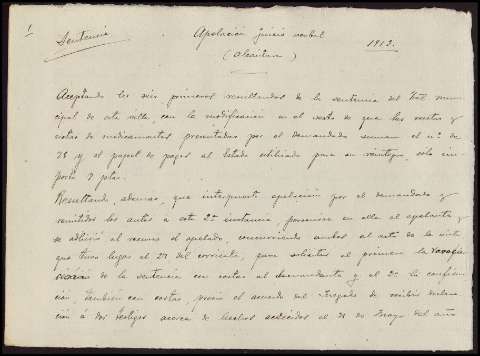 1
Sentencia
Apelación juicio verbal
(Alcántara)
1913.
Aceptando los seis primeros resultandos de la sentencia del Tral muni-
cipal de esta villa, con la modificación en el sexto de que las recetas y
notas de medicamentos presentadas por el demandado suman el nº de
78 y el papel de pagos al Estado utilizado para su reintegro, solo im-
porta 7 ptas.
Resultando, además, que interpuesta apelación por el demandado y
remitidos los autos a esta 2ª instancia, personóse en ella el apelante y
se adhirió al recurso el apelado, concurriendo ambos al acto de la vista
que tuvo lugar el 27 del corriente, para solicitar el primero la revoca
ción de la sentencia con costas al demandante y el 2º la confirma-
ción, también con costas, previo el acuerdo del Juzgado de recibir declara-
ción á dos testigos acerca de hechos acaecidos el de Mayo del año